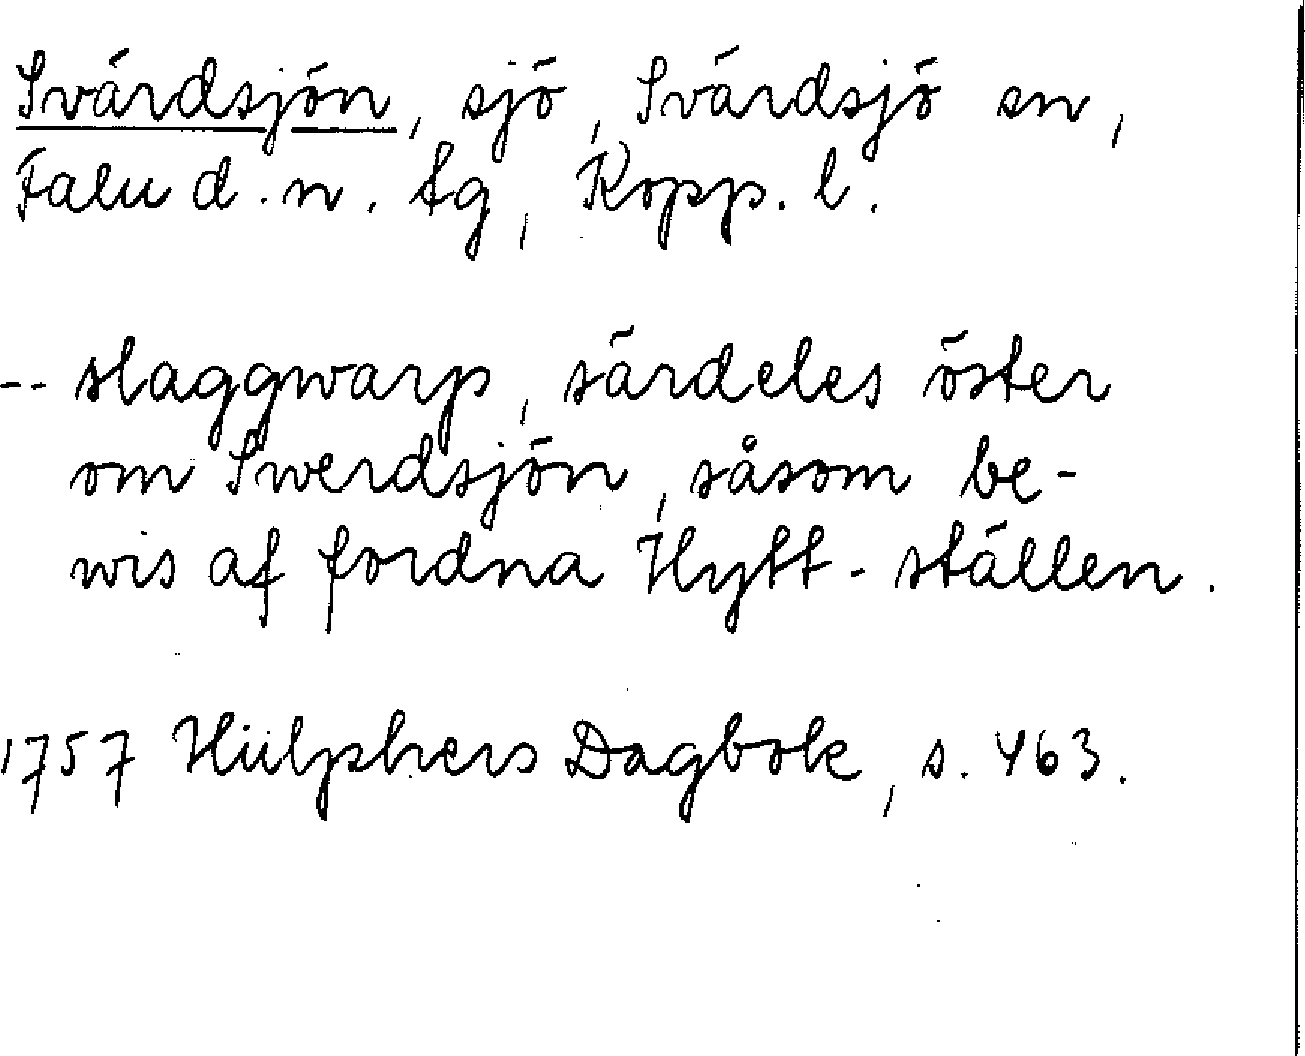 Svärdsjön, sjö, Svärdsjö sn,
Falu d.n. tg, Kopp. l.
-- slaggwarp, särdeles öster
om Swerdsjön, såsom be-
wis af fordna Hytt-ställen.
1757 Hülphers Dagbok, s. 463.